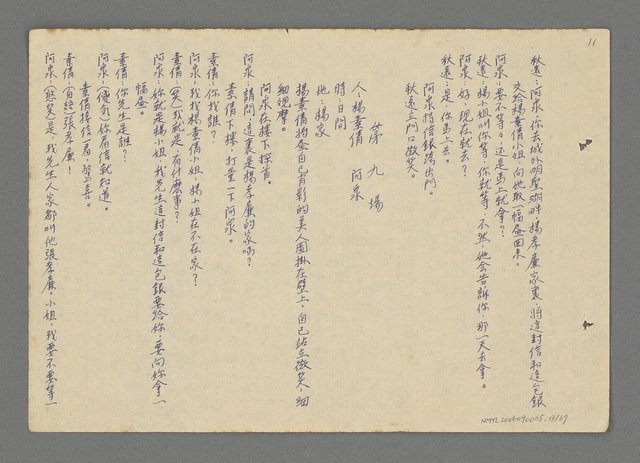 11
秋遠：阿泉，你去城外明聖湖畔，楊孝廉家裏，將這封信和這包銀
交給楊素倩小姐，向她取一幅畫回來。
阿泉：要不等，还是馬上就拿？
秋遠：楊小姐叫你等，你就等，不然，她会告訴你，那一天去拿。
阿泉：好，現在就去？
秋遠：是，你馬上去。
阿泉持信銀跨出門。
秋遠立門口微笑。
第九場
人：楊素倩 阿泉
時：日間
地：楊家
楊素倩將畫自己有影的美人圖掛在壁上，自己站立微笑，細
細觀摩。
阿泉在樓下探首。
阿泉：請問，這裏是楊孝廉的家嗎？
素倩下樓，打量一下阿泉。
素倩：你找誰？
阿泉：我找楊素倩小姐，楊小姐在不在家？
素倩：(笑)我就是，有什麼事？
阿泉：你就是楊小姐，我先生這封信和這包銀要給妳，要向妳拿一
幅畫。
素倩：你先生是誰？
阿泉：(傻死)你看信就知道。
素倩接信一看，驚喜。
素倩：(自語)張孝廉！
阿泉：(憨笑)是，我先生人家都叫他張孝廉，小姐，我要不要等一
NMTL20060900115, 13/69